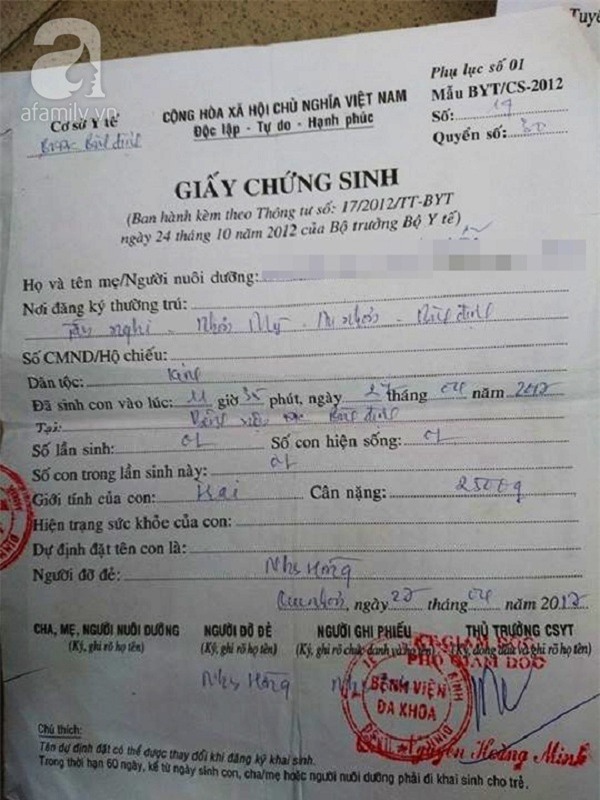 Tuyế
afamily.vn
Phụ lục số 01
Mẫu BYT/CS-2012
Số: 19
Quyển số: 30
Cơ sở Y tế
CỘNG HÒA XÃ HỘI CHỦ NGHĨA VIỆT NAM
Độc lập - Tự do - Hạnh phúc
Bình Định
GIẤY CHỨNG SINH
(Ban hành kèm theo Thông tư số: 17/2012/TT-BYT
ngày 24 tháng 10 năm 2012 của Bộ trưởng Bộ Y tế)
Họ và tên mẹ/Người nuôi dưỡng:
Nơi đăng ký thường trú:
Nhơn Mỹ - An Nhơn - Bình Định
Số CMND/Hộ chiếu:
Dân tộc: Kinh
Đã sinh con vào lúc: 11 giờ 35 phút, ngày 27 tháng 04 năm 2017
Tại: Bệnh viện ĐK Bình Định
Số lần sinh: 01 Số con hiện sống: 01
Số con trong lần sinh này: 01
Giới tính của con: Trai Cân nặng: 2500g
Hiện trạng sức khỏe của con:
Dự định đặt tên con là:
Người đỡ đẻ: Hồng
Quy Nhơn, ngày 27 tháng 04 năm 2017
CHA, MẸ, NGƯỜI NUÔI DƯỠNG NGƯỜI ĐỠ ĐẺ NGƯỜI GHI PHIẾU THỦ TRƯỞNG CSYT
(Ký, ghi rõ họ tên) (Ký, ghi rõ họ tên) (Ký, ghi rõ chức danh và họ tên) (Ký, đóng dấu và ghi rõ họ tên)
KT.GIÁM ĐỐC
PHÓ GIÁM ĐỐC
BỆNH VIỆN
ĐA KHOA
Hồng
Nguyễn Hoàng Minh
Chú thích:
Tên dự định đặt có thể được thay đổi khi đăng ký khai sinh.
Trong thời hạn 60 ngày, kể từ ngày sinh con, cha/mẹ hoặc người nuôi dưỡng phải đi khai sinh cho trẻ.